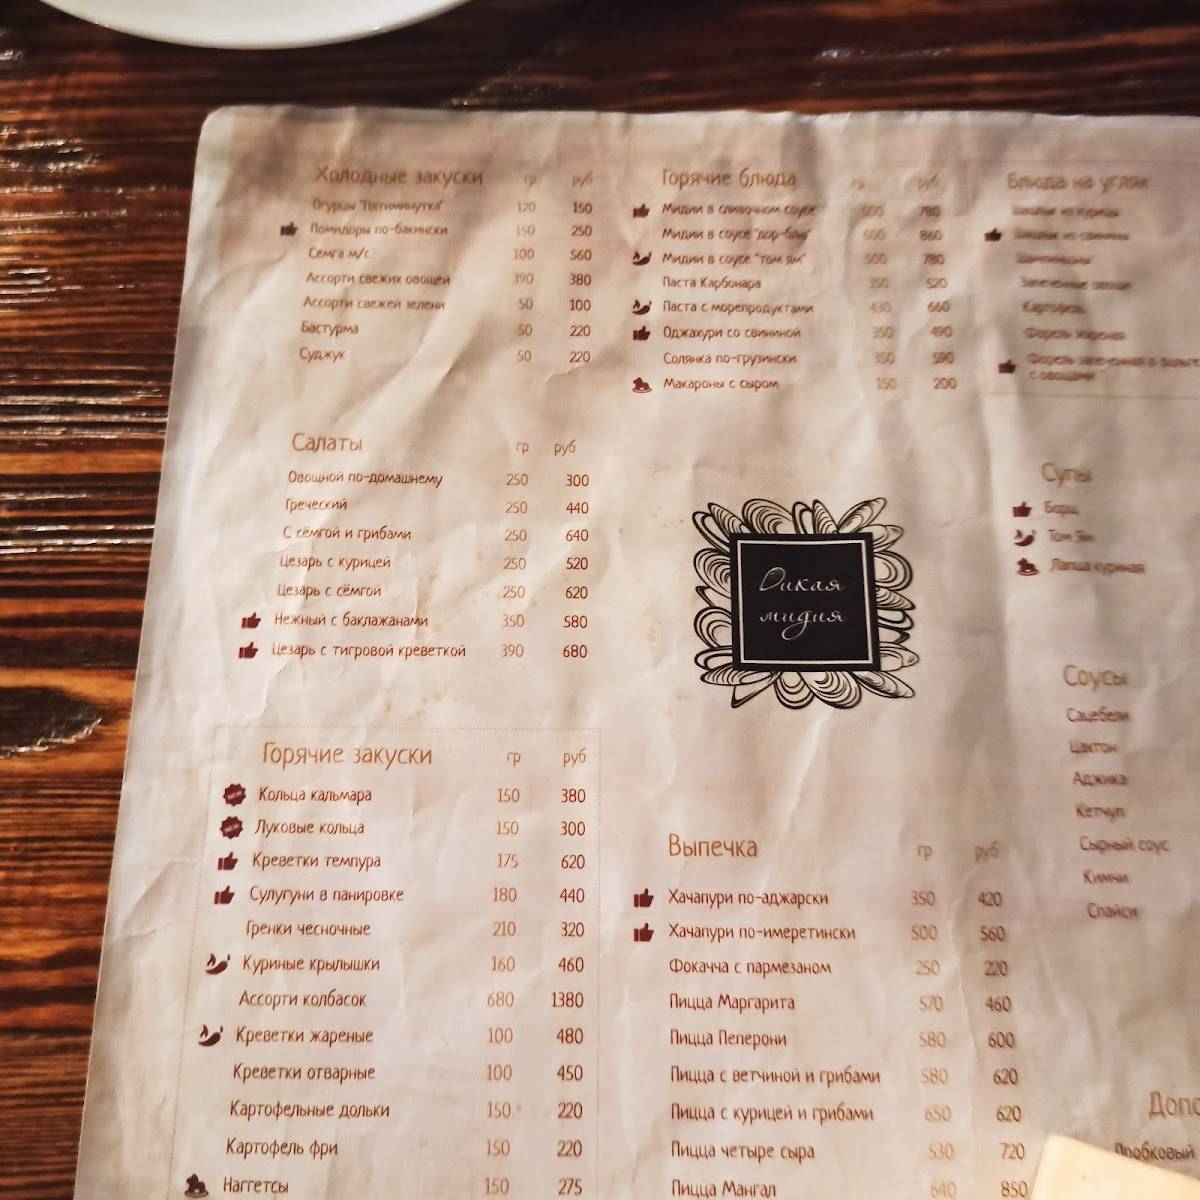 Холодные закуски гр руб
Огурцы "Пятиминутка" 120 150
Помидоры по-бакински 150 250
Семга м/с 100 560
Ассорти свежих овощей 390 380
Ассорти свежей зелени 50 100
Бастурма 50 220
Суджук 50 220
Салаты гр руб
Овощной по-домашнему 250 300
Греческий 250 440
С сёмгой и грибами 250 640
Цезарь с курицей 250 520
Цезарь с сёмгой 250 620
Нежный с баклажанами 350 580
Цезарь с тигровой креветкой 390 680
Горячие закуски гр руб
Кольца кальмара 150 380
Луковые кольца 150 300
Креветки темпура 175 620
Сулугуни в панировке 180 440
Гренки чесночные 210 320
Куриные крылышки 160 460
Ассорти колбасок 680 1380
Креветки жареные 100 480
Креветки отварные 100 450
Картофельные дольки 150 220
Картофель фри 150 220
Наггетсы 150 275
Горячие блюда гр руб
Мидии в сливочном соусе 500 780
Мидии в соусе "дор-блю" 600 860
Мидии в соусе "том ям" 500 780
Паста Карбонара 350 520
Паста с морепродуктами 430 660
Оджахури со свининой 350 490
Солянка по-грузински 350 590
Макароны с сыром 150 200
Дикая
мидия
Выпечка гр руб
Хачапури по-аджарски 350 420
Хачапури по-имеретински 500 560
Фокачча с пармезаном 250 220
Пицца Маргарита 570 460
Пицца Пеперони 580 600
Пицца с ветчиной и грибами 580 620
Пицца с курицей и грибами 650 620
Пицца четыре сыра 530 720
Пицца Мангал 640 850
Блюда на углях
Шашлык из курицы
Шашлык из свинины
Шампиньоны
Запеченные овощи
Картофель
Форель жареная
Форель запеченная в фольге
с овощами
Супы
Борщ
Том Ям
Лапша куриная
Соусы
Сацебели
Цахтон
Аджика
Кетчуп
Сырный соус
Кимчи
Спайси
Допо
Пробковый